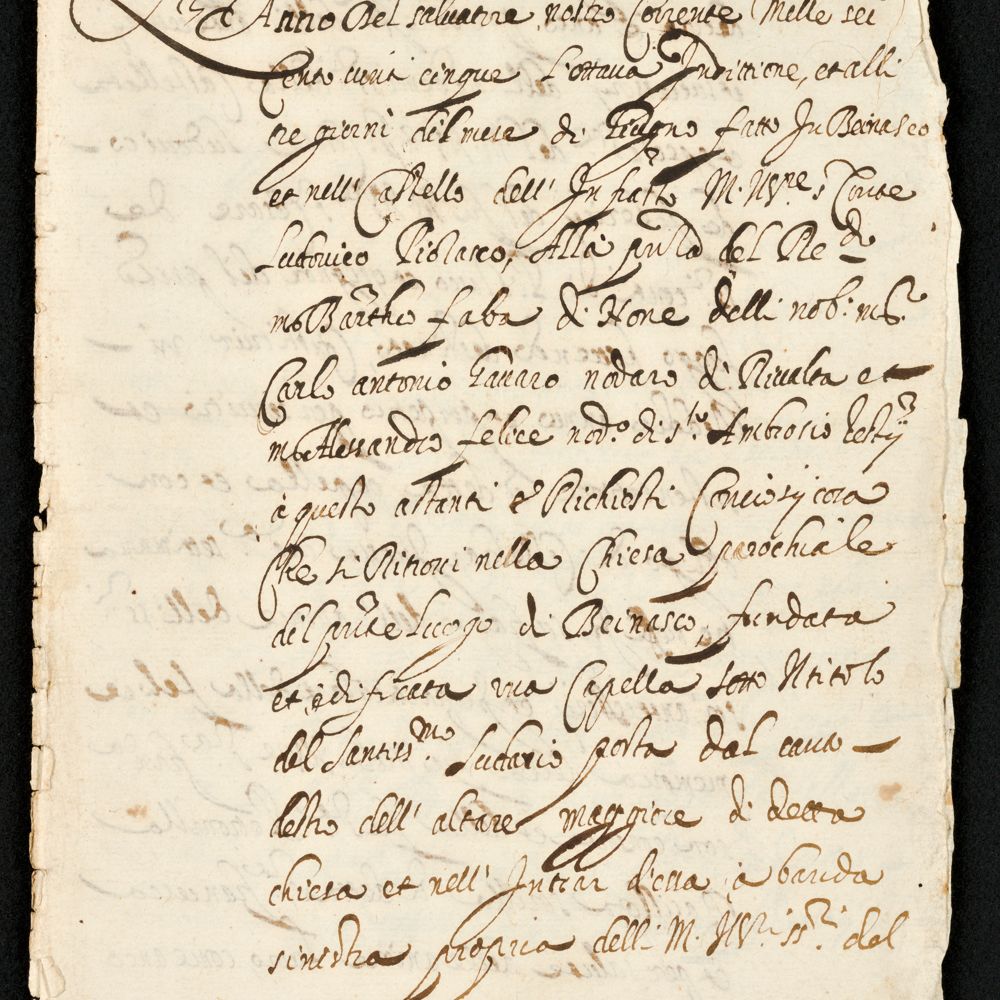 Anno Del salvatore nostro Corrente Mille sei
Cento vinti cinque l'ottava Indittione, et alli
tre giorni del mese di Giugno fatto In Beinasco
et nell' Castello dell' Infratto M. Ill.re s. Conte
Ludovico Piolasco, Alla pnza del Re.do
ms Bartheo fabr di None delli nob. ms.
Carlo antonio Gavaro nodaro di Rivalta et
ms Alessandro felice nod.o di s.to Ambrosio testij
à questo astanti e Richiesti Conciosij cosa
Che si Ritrovi nella Chiesa parochiale
del pnte Luogo di Beinasco, fundata
et edificata una Capella sotto Il titolo
del Santiss.mo Sudario posta dal canto
destro dell' altare maggiore di detta
chiesa et nell' Intrar d'essa a banda
sinistra propria delli M. Ill.ri ss.ri del